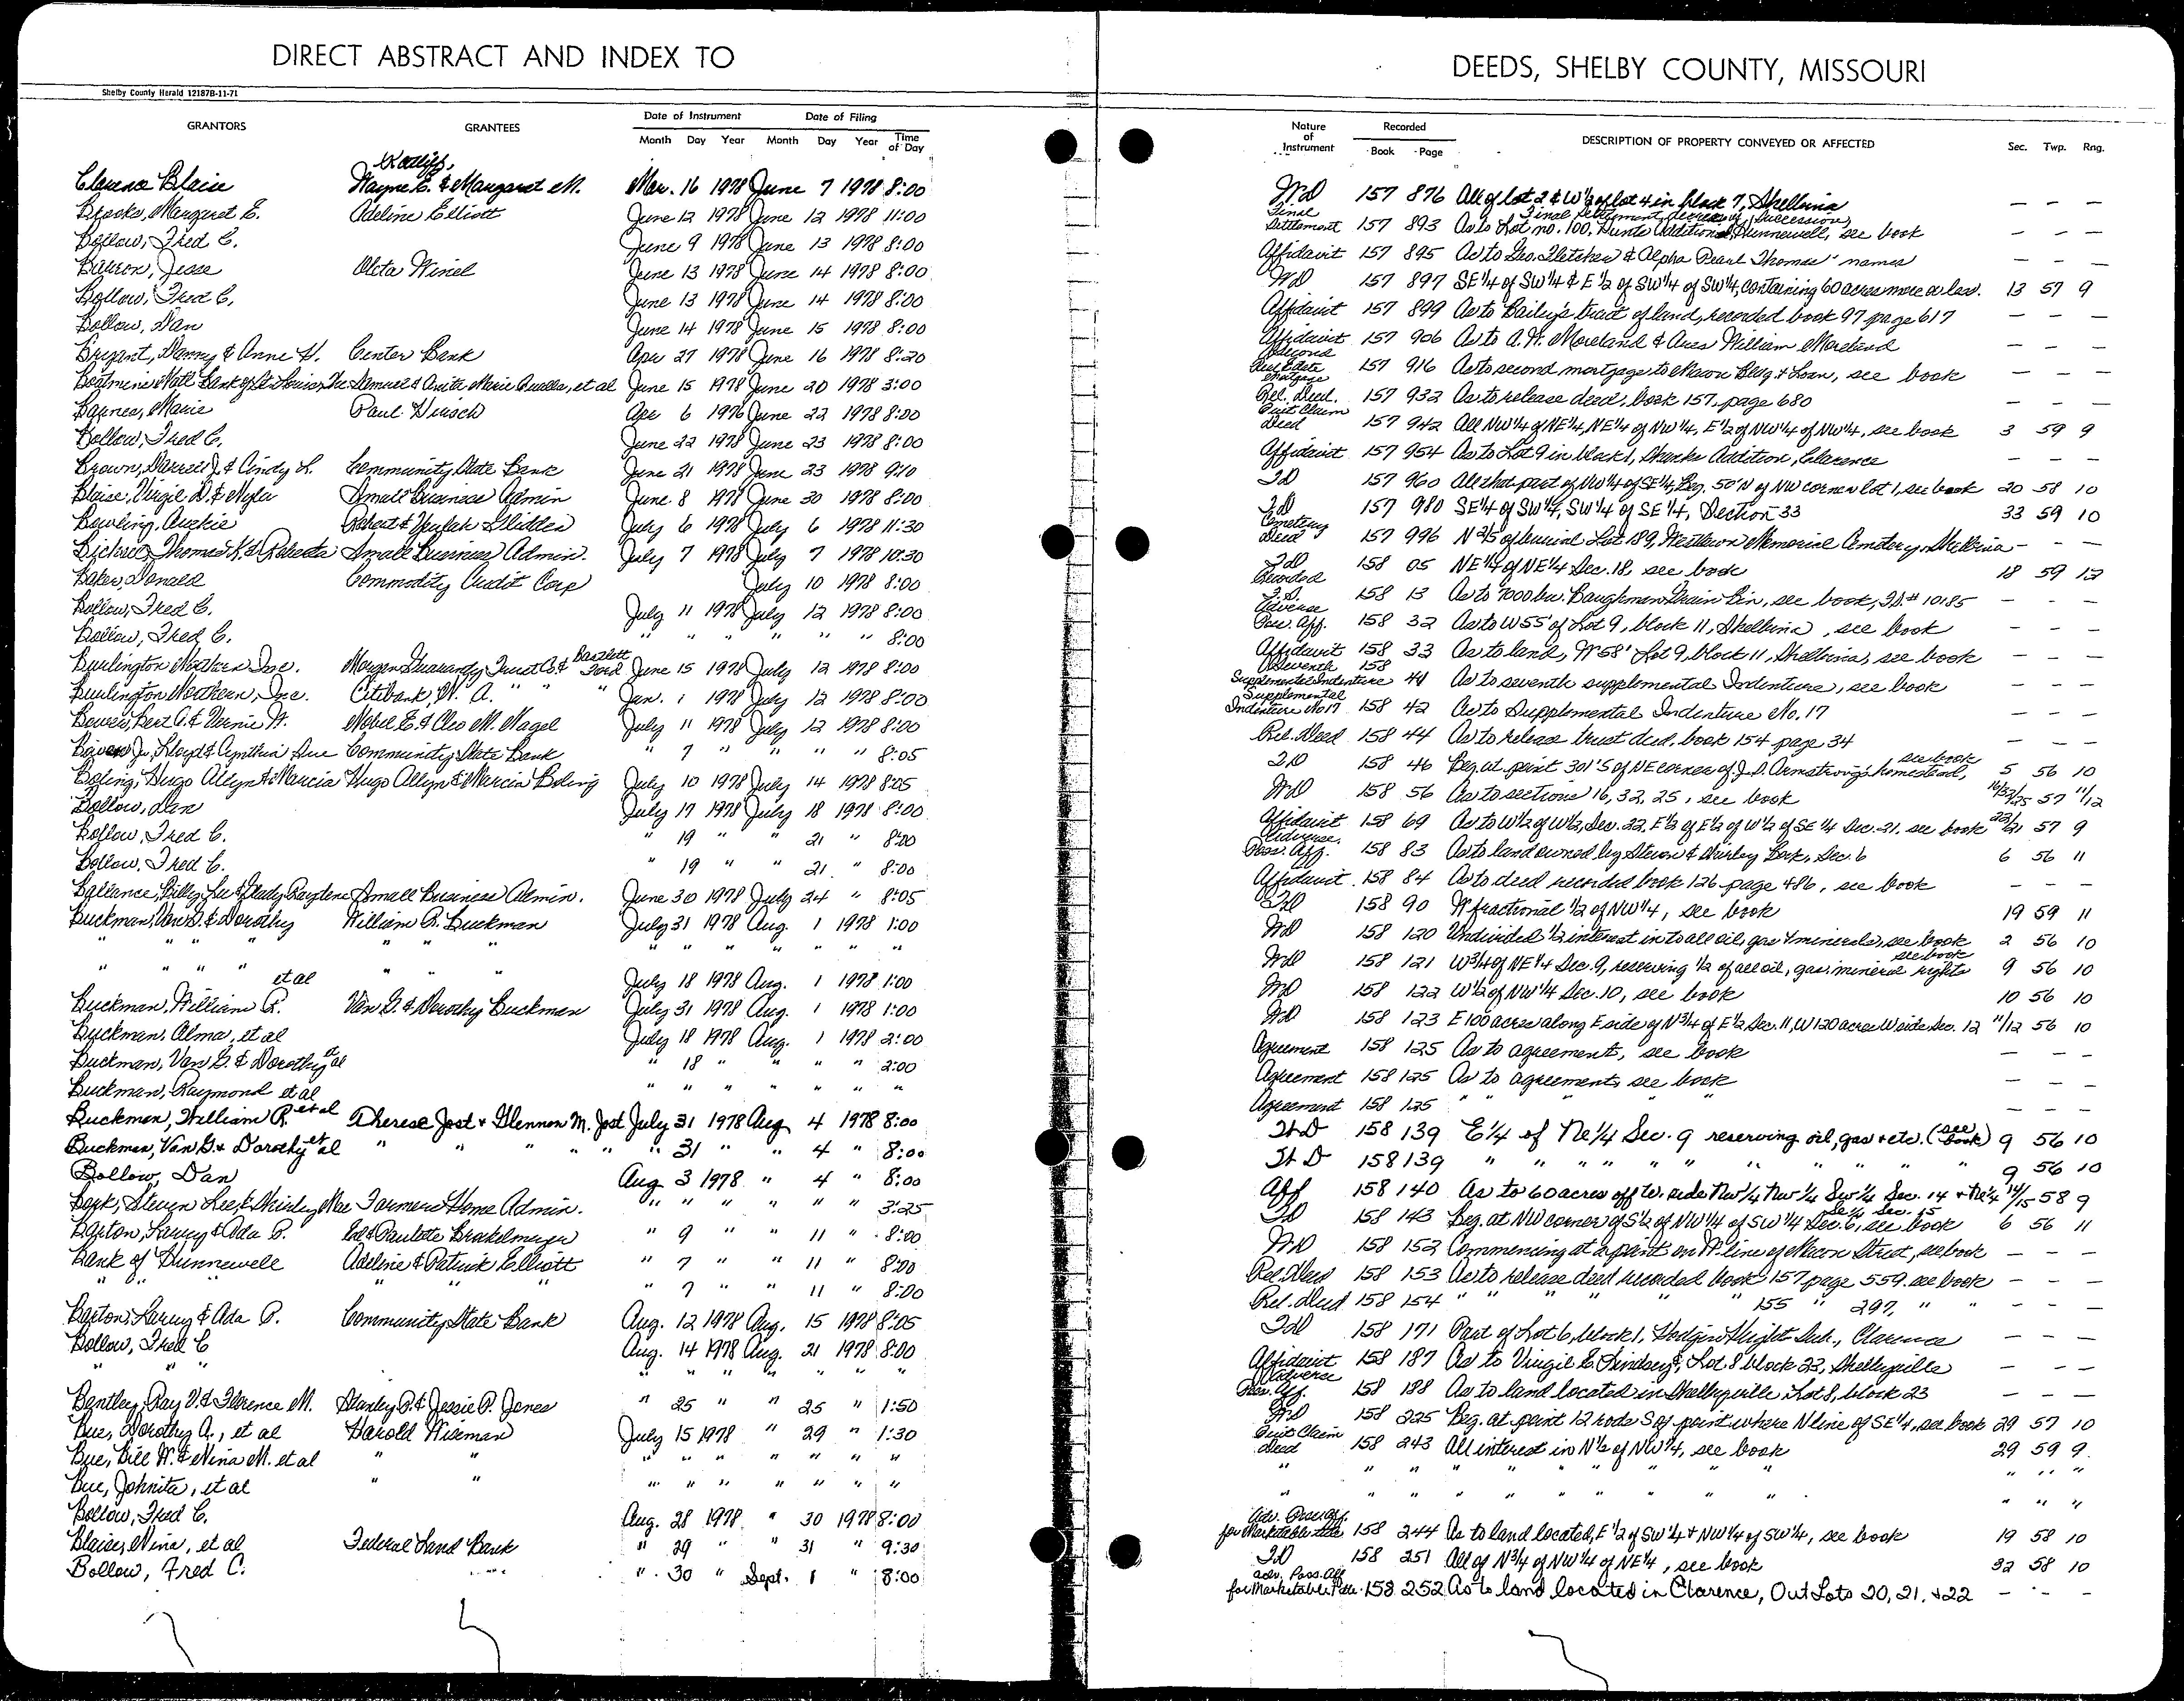 DIRECT ABSTRACT AND INDEX TO
Shelby County Herald 12187B-11-71
GRANTORS GRANTEES Date of Instrument Date of Filing
Month Day Year Month Day Year Time of Day
Clarence Blain Wayne E. & Margaret M. Mar. 16 1978 June 7 1978 8:00
Margaret E. Adeline Elliott June 12 1978 June 12 1978 11:00
Bollow, Fred C. June 9 1978 June 13 1978 8:00
Jesse June 13 1978 June 14 1978 8:00
Bollow, Fred C. June 13 1978 June 14 1978 8:00
Bollow, Dan June 14 1978 June 15 1978 8:00
Bryant, Danny & Anne H. Center Bank Apr 27 1978 June 16 1978 8:20
et al June 15 1978 June 20 1978 3:00
Barnes, Marie Paul Hirsch Apr 6 1976 June 22 1978 8:00
Bollow, Fred C. June 22 1978 June 23 1978 8:00
Brown, Darrell J. & Cindy L. Community State Bank June 21 1978 June 23 1978 9:10
Blaise, Virgil D. & Nyla Small Business Admin June 8 1978 June 30 1978 8:00
Bowling, Archie July 6 1978 July 6 1978 11:30
Thomas K. & Roberta Small Business Admin. July 7 1978 July 7 1978 10:30
Baker, Donald Commodity Credit Corp July 10 1978 8:00
Bollow, Fred C. July 11 1978 July 12 1978 8:00
Bollow, Fred C. " " " " " " 8:00
Burlington Northern Inc. Morgan Guaranty Trust Co. & Bartlett Ford June 15 1978 July 12 1978 8:00
Burlington Northern, Inc. Citibank, N. A. " " " Jan. 1 1978 July 12 1978 8:00
Bert A. & Vernie W. E. & Cleo M. Nagel July 11 1978 July 12 1978 8:00
Jr. Lloyd & Cynthia Sue Community State Bank " 7 " " " " 8:05
Boling, Hugo Allyn & Marcia Hugo Allyn & Marcia Boling July 10 1978 July 14 1978 8:05
Bollow, Dan July 17 1978 July 18 1978 8:00
Bollow, Fred C. " 19 " " 21 " 8:00
Bollow, Fred C. " 19 " " 21 " 8:00
Ballance, Billy Lee & Glady Raylene Small Business Admin. June 30 1978 July 24 " 8:05
Buckman, Van G. & Dorothy William R. Buckman July 31 1978 Aug. 1 1978 1:00
" " " " " " " " " " "
" " " " et al " " " July 18 1978 Aug. 1 1978 1:00
Buckman, William R. Van G. & Dorothy Buckman July 31 1978 Aug. 1 1978 1:00
Buckman, Alma, et al July 18 1978 Aug. 1 1978 2:00
Buckman, Van G. & Dorothy et al " 18 " " " " 2:00
Buckman, Raymond et al " " " " " " "
Buckman, William R. et al Therese Jost & Glennon M. Jost July 31 1978 Aug 4 1978 8:00
Buckman, Van G. & Dorothy et al " " " " " 31 " " 4 " 8:00
Bollow, Dan Aug 3 1978 " 4 " 8:00
Bock, Steven Lee & Shirley Mae Farmers Home Admin. " " " " " " 3:25
Barton, Larry & Ada P. Ed & Paulette Brakelmeyer " 9 " " 11 " 8:00
Bank of Hunnewell Adeline & Patrick Elliott " 7 " " 11 " 8:00
" " " " " " " 7 " " 11 " 8:00
Barton, Larry & Ada P. Community State Bank Aug. 12 1978 Aug. 15 1978 8:05
Bollow, Fred C Aug. 14 1978 Aug. 21 1978 8:00
" " " " " " " " " "
Bentley, Ray V. & Florence M. Stanley R. & Jessie P. Jones " 25 " " 25 " 1:50
Bue, Dorothy A., et al Harold Wiseman July 15 1978 " 29 " 1:30
Bue, Bill W. & Nina M. et al " " " " " " " " "
Bue, Johnita, et al " " " " " " " " "
Bollow, Fred C. Aug. 28 1978 " 30 1978 8:00
Blaise, Nina, et al Federal Land Bank " 29 " " 31 " 9:30
Bollow, Fred C. " 30 " Sept. 1 " 8:00
DEEDS, SHELBY COUNTY, MISSOURI
Nature of Instrument Recorded DESCRIPTION OF PROPERTY CONVEYED OR AFFECTED Sec. Twp. Rng.
Book Page
WD 157 876 All of lot 2 & W½ of lot 4 in block 7, Shelbina — — —
Final Settlement 157 893 Final Settlement, decree of succession, As to Lot no. 100, Hunts Addition, Hunnewell, see book — — —
Affidavit 157 895 As to Geo. Fletcher & Alpha Pearl Thomas' names — — —
WD 157 897 SE¼ of SW¼ & E½ of SW¼ of SW¼, containing 60 acres more or less. 13 57 9
Affidavit 157 899 As to Bailey's tract of land, recorded book 97 page 617 — — —
Affidavit 157 906 As to A. W. Moreland & William Moreland — — —
Second Real Estate Mortgage 157 916 As to second mortgage to Macon Bldg. & Loan, see book — — —
Rel. Deed. 157 932 As to release deed, book 157, page 680 — — —
Quit Claim Deed 157 942 All NW¼ of NE¼, NE¼ of NW¼, E½ of NW¼ of NW¼, see book 3 59 9
Affidavit 157 954 As to Lot 9 in block 1, Shanks Addition, Clarence — — —
TD 157 960 All that part of NW¼ of SE¼, Beg. 50' N of NW corner lot 1, see book 20 58 10
TD 157 980 SE¼ of SW¼, SW¼ of SE¼, Section 33 33 59 10
Cemetery Deed 157 996 N 2/5 of burial Lot 189, Westlawn Memorial Cemetery, Shelbina — — —
TD 158 05 NE¼ of NE¼ Sec. 18, see book 18 59 12
Recorded F.S. 158 13 As to 7000 bu. Baughman Grain Bin, see book, # 10185 — — —
Adverse Poss. Aff. 158 32 As to W 55' of Lot 9, block 11, Shelbina, see book — — —
Affidavit 158 33 As to land, W 58' Lot 9, block 11, Shelbina, see book — — —
Seventh Supplemental Indenture 158 41 As to seventh supplemental Indenture, see book — — —
Supplemental Indenture No 17 158 42 As to Supplemental Indenture No. 17 — — —
Rel. Deed 158 44 As to release trust deed, book 154 page 34 — — —
TD 158 46 Beg. at point 301' S of NE corner of J. D. Armstrong's homestead, see book 5 56 10
WD 158 56 As to sections 16, 32, 25, see book 16/32/25 57 11/12
Affidavit 158 69 As to W½ of W½, Sec. 22, E½ of E½ of W½ of SE¼ Sec. 21, see book 22/21 57 9
Adverse Poss. Aff. 158 83 As to land owned by Steven & Shirley Bock, Sec. 6 6 56 11
Affidavit 158 84 As to deed recorded book 126 page 486, see book — — —
TD 158 90 W fractional ½ of NW¼, see book 19 59 11
WD 158 120 Undivided ½ interest in to all oil, gas & minerals, see book 2 56 10
WD 158 121 W¾ of NE¼ Sec. 9, reserving ½ of all oil, gas, mineral rights see book 9 56 10
WD 158 122 W½ of NW¼ Sec. 10, see book 10 56 10
WD 158 123 E 100 acres along E side of N¾ of E½ Sec. 11, W 120 acres W side Sec. 12 11/12 56 10
Agreement 158 125 As to agreement, see book — — —
Agreement 158 125 As to agreement, see book — — —
Agreement 158 125 " " " " — — —
WD 158 139 E¼ of Ne¼ Sec. 9 reserving oil, gas & etc. (see book) 9 56 10
WD 158 139 " " " " " " " " " " 9 56 10
Aff 158 140 As to 60 acres off W. side Nw¼ Nw¼ Sw¼ Sec. 14 & Ne¼ Se¼ Sec. 15 14/15 58 9
TD 158 143 Beg. at NW corner of S½ of NW¼ of SW¼ Sec. 6, see book 6 56 11
WD 158 152 Commencing at a point on W. line of Macon Street, see book — — —
Rel. Deed 158 153 As to release deed recorded book 157 page 559. see book — — —
Rel. Deed 158 154 " " " " " 155 " 297, " " — — —
TD 158 171 Part of Lot 6, block 1, Clarence — — —
Affidavit 158 187 As to Virgil E. Lindsey, Lot 8 block 23, Shelbyville — — —
Adverse Poss. Aff. 158 188 As to land located in Shelbyville Lot 8, block 23 — — —
WD 158 225 Beg. at point 12 rods S of point where N line of SE¼, see book 29 57 10
Quit Claim Deed 158 243 All interest in N½ of NW¼, see book 29 59 9
" " " " " " " " " " " "
" " " " " " " " " " " "
Adv. Poss. Aff. for Marketable title 158 244 As to land located, E½ of SW¼ & NW¼ of SW¼, see book 19 58 10
TD 158 251 All of N¾ of NW¼ of NE¼, see book 32 58 10
adv. Poss. Aff for Marketable title 158 252 As to land located in Clarence, Out Lots 20, 21, & 22 — — —